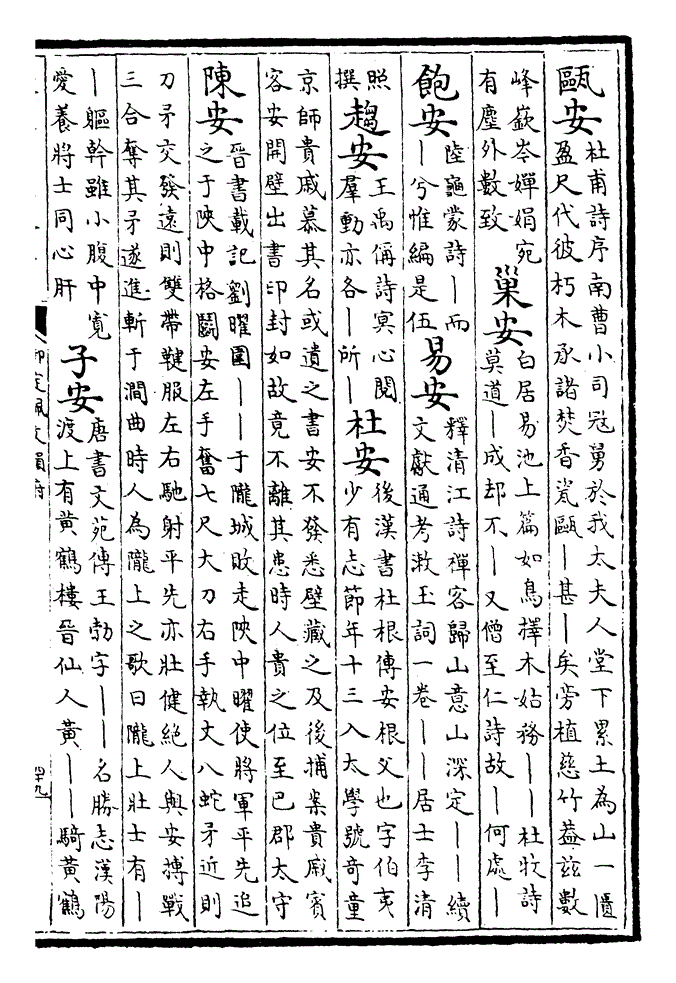 甌安
杜甫詩序南曹小司冦舅於我太夫人堂下累土為山一匱
盈尺代彼朽木承諸焚香瓷甌丨甚丨矣旁植慈竹葢兹數
峰嶔岑嬋娟宛
有塵外數致
巢安
白居易池上篇如鳥擇木姑務丨丨杜牧詩
莫道丨成却不丨又僧至仁詩故丨何處丨
飽安
陸龜蒙詩丨而
丨兮惟編是伍
易安
釋清江詩禪客歸山意山深定丨丨續
文獻通考漱玉詞一卷丨丨居士李清
照
撰
趨安
王禹偁詩冥心閱
羣動亦各丨所丨
杜安
後漢書杜根傳安根父也字伯夷
少有志節年十三入太學號竒童
京師貴戚慕其名或遺之書安不發悉壁藏之及後捕案貴戚賓
客安開壁出書印封如故竟不離其患時人貴之位至巴郡太守
陳安
晉書載記劉曜圍丨丨于隴城敗走陝中曜使將軍平先追
之于陝中格鬬安左手奮七尺大刀右手執丈八蛇矛近則
刀矛交發遠則雙帶鞬服左右馳射平先亦壯健絶人與安搏戰
三合奪其矛遂進斬于澗曲時人為隴上之歌曰隴上壯士有丨
丨軀幹雖小腹中寛
愛養將士同心肝
子安
唐書文苑傳王勃字丨丨名勝志漢陽
渡上有黄鶴樓晉仙人黄丨丨騎黄鶴